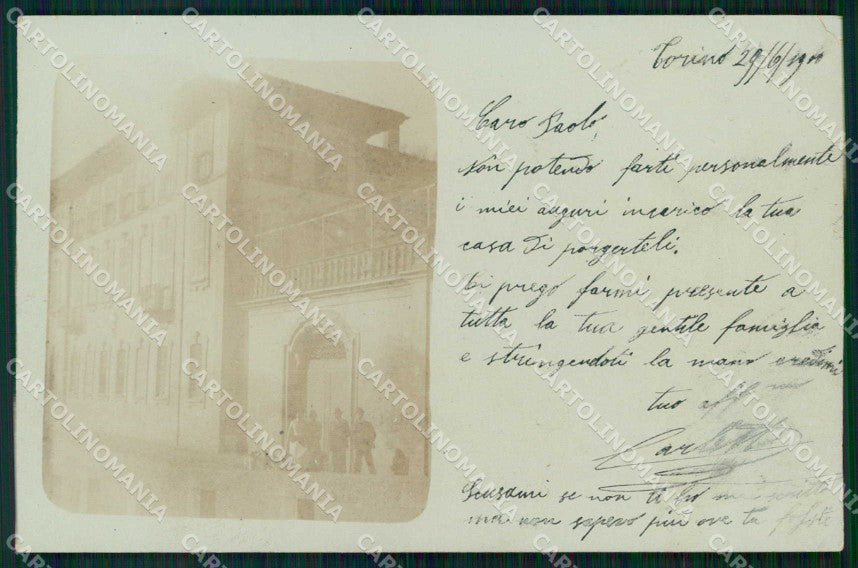 Torino 29/6/900
Caro Paolo,
Non potendo farti personalmente
i miei auguri incarico la tua
casa di porgerteli.
Ti prego farmi presente a
tutta la tua gentile famiglia
e stringendoti la mano credimi
tuo aff mo
Scusami se non ti ho mai scritto
ma non sapevo più ove tu fossi
CARTOLINOMANIA